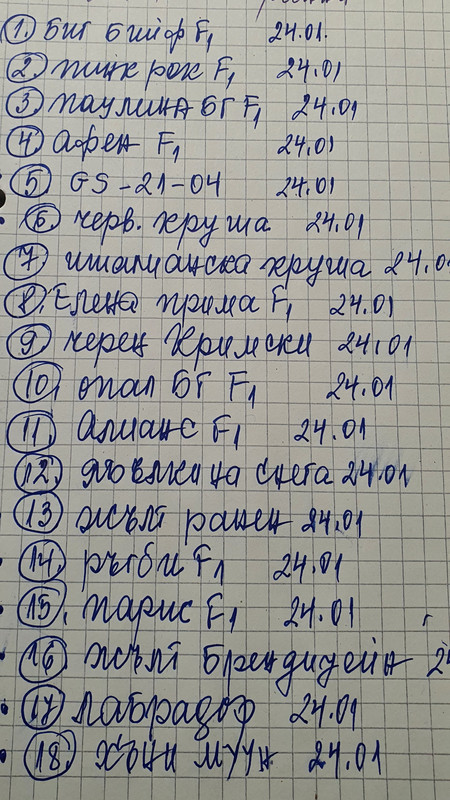 1. биг бииф F1 24.01.
2. пинк рок F1 24.01
3. паулина БГ F1 24.01
4 афен F1 24.01
5 GS-21-04 24.01
6. черв. круша 24.01
7 италианска круша 24.01
8. Елена прима F1 24.01
9 черен Кримски 24.01
10. опал БГ F1 24.01
11. Алианс F1 24.01
12. ябълки на снега 24.01
13 жълт ранен 24.01
14. ръгби F1 24.01
15. парис F1 24.01
16 жълт Брендидейн 24
17 лабрадор 24.01
18. хъни муун 24.01